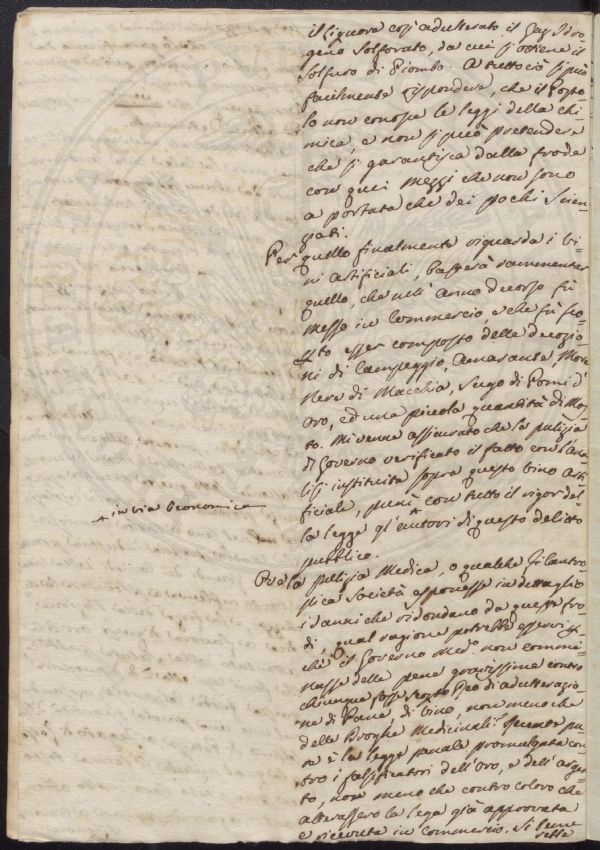 il liquore così adulterato il Gaz Idro-
geno Solforato, da cui si ottiene il
Solfuro di Piombo. A tutto ciò si può
facilmente rispondere, che il Popo-
lo non conosce le leggi della chi-
mica, e non si può pretendere
che si garantisca dalla frode
con quei mezzi che non sono
a portata che dei pochi Scien-
ziati.
Per quello finalmente riguarda i vi-
ni artificiali, basterà rammentar
quello, che nell'anno decorso fù
messo in Commercio, e che fù
esser composto delle decozio-
ni di Campeggio, Amarante, More
Nere di Macchia, Sugo di Pomi d'
oro, ed una piccola quantità di Mo-
sto. Mi venne assicurato che la pulizia
di Governo verificato il fatto con l'ana-
lisi instituita sopra questo vino arti-
ficiale, punì con tutto il rigor del-
+ in via Economica
la legge gl'autori di questo delitto
pubblico.
Ove la Pulizia Medica, o qualche Filantro-
pica Società esponesse in dettaglio
i danni che ridondano da queste fro-
di, qual ragione potrebbe esservi per-
chè il Governo non commi-
nasse delle pene gravissime contro
chiunque fosse Reo di adulterazio-
ne di Pane, di vino, non meno che
delle Droghe Medicinali?
è la legge penale promulgata con-
tro i falsificatori dell'oro, e dell'argen-
to, non meno che contro coloro che
alterassero la lega già approvata
e ricevuta in commercio. Si